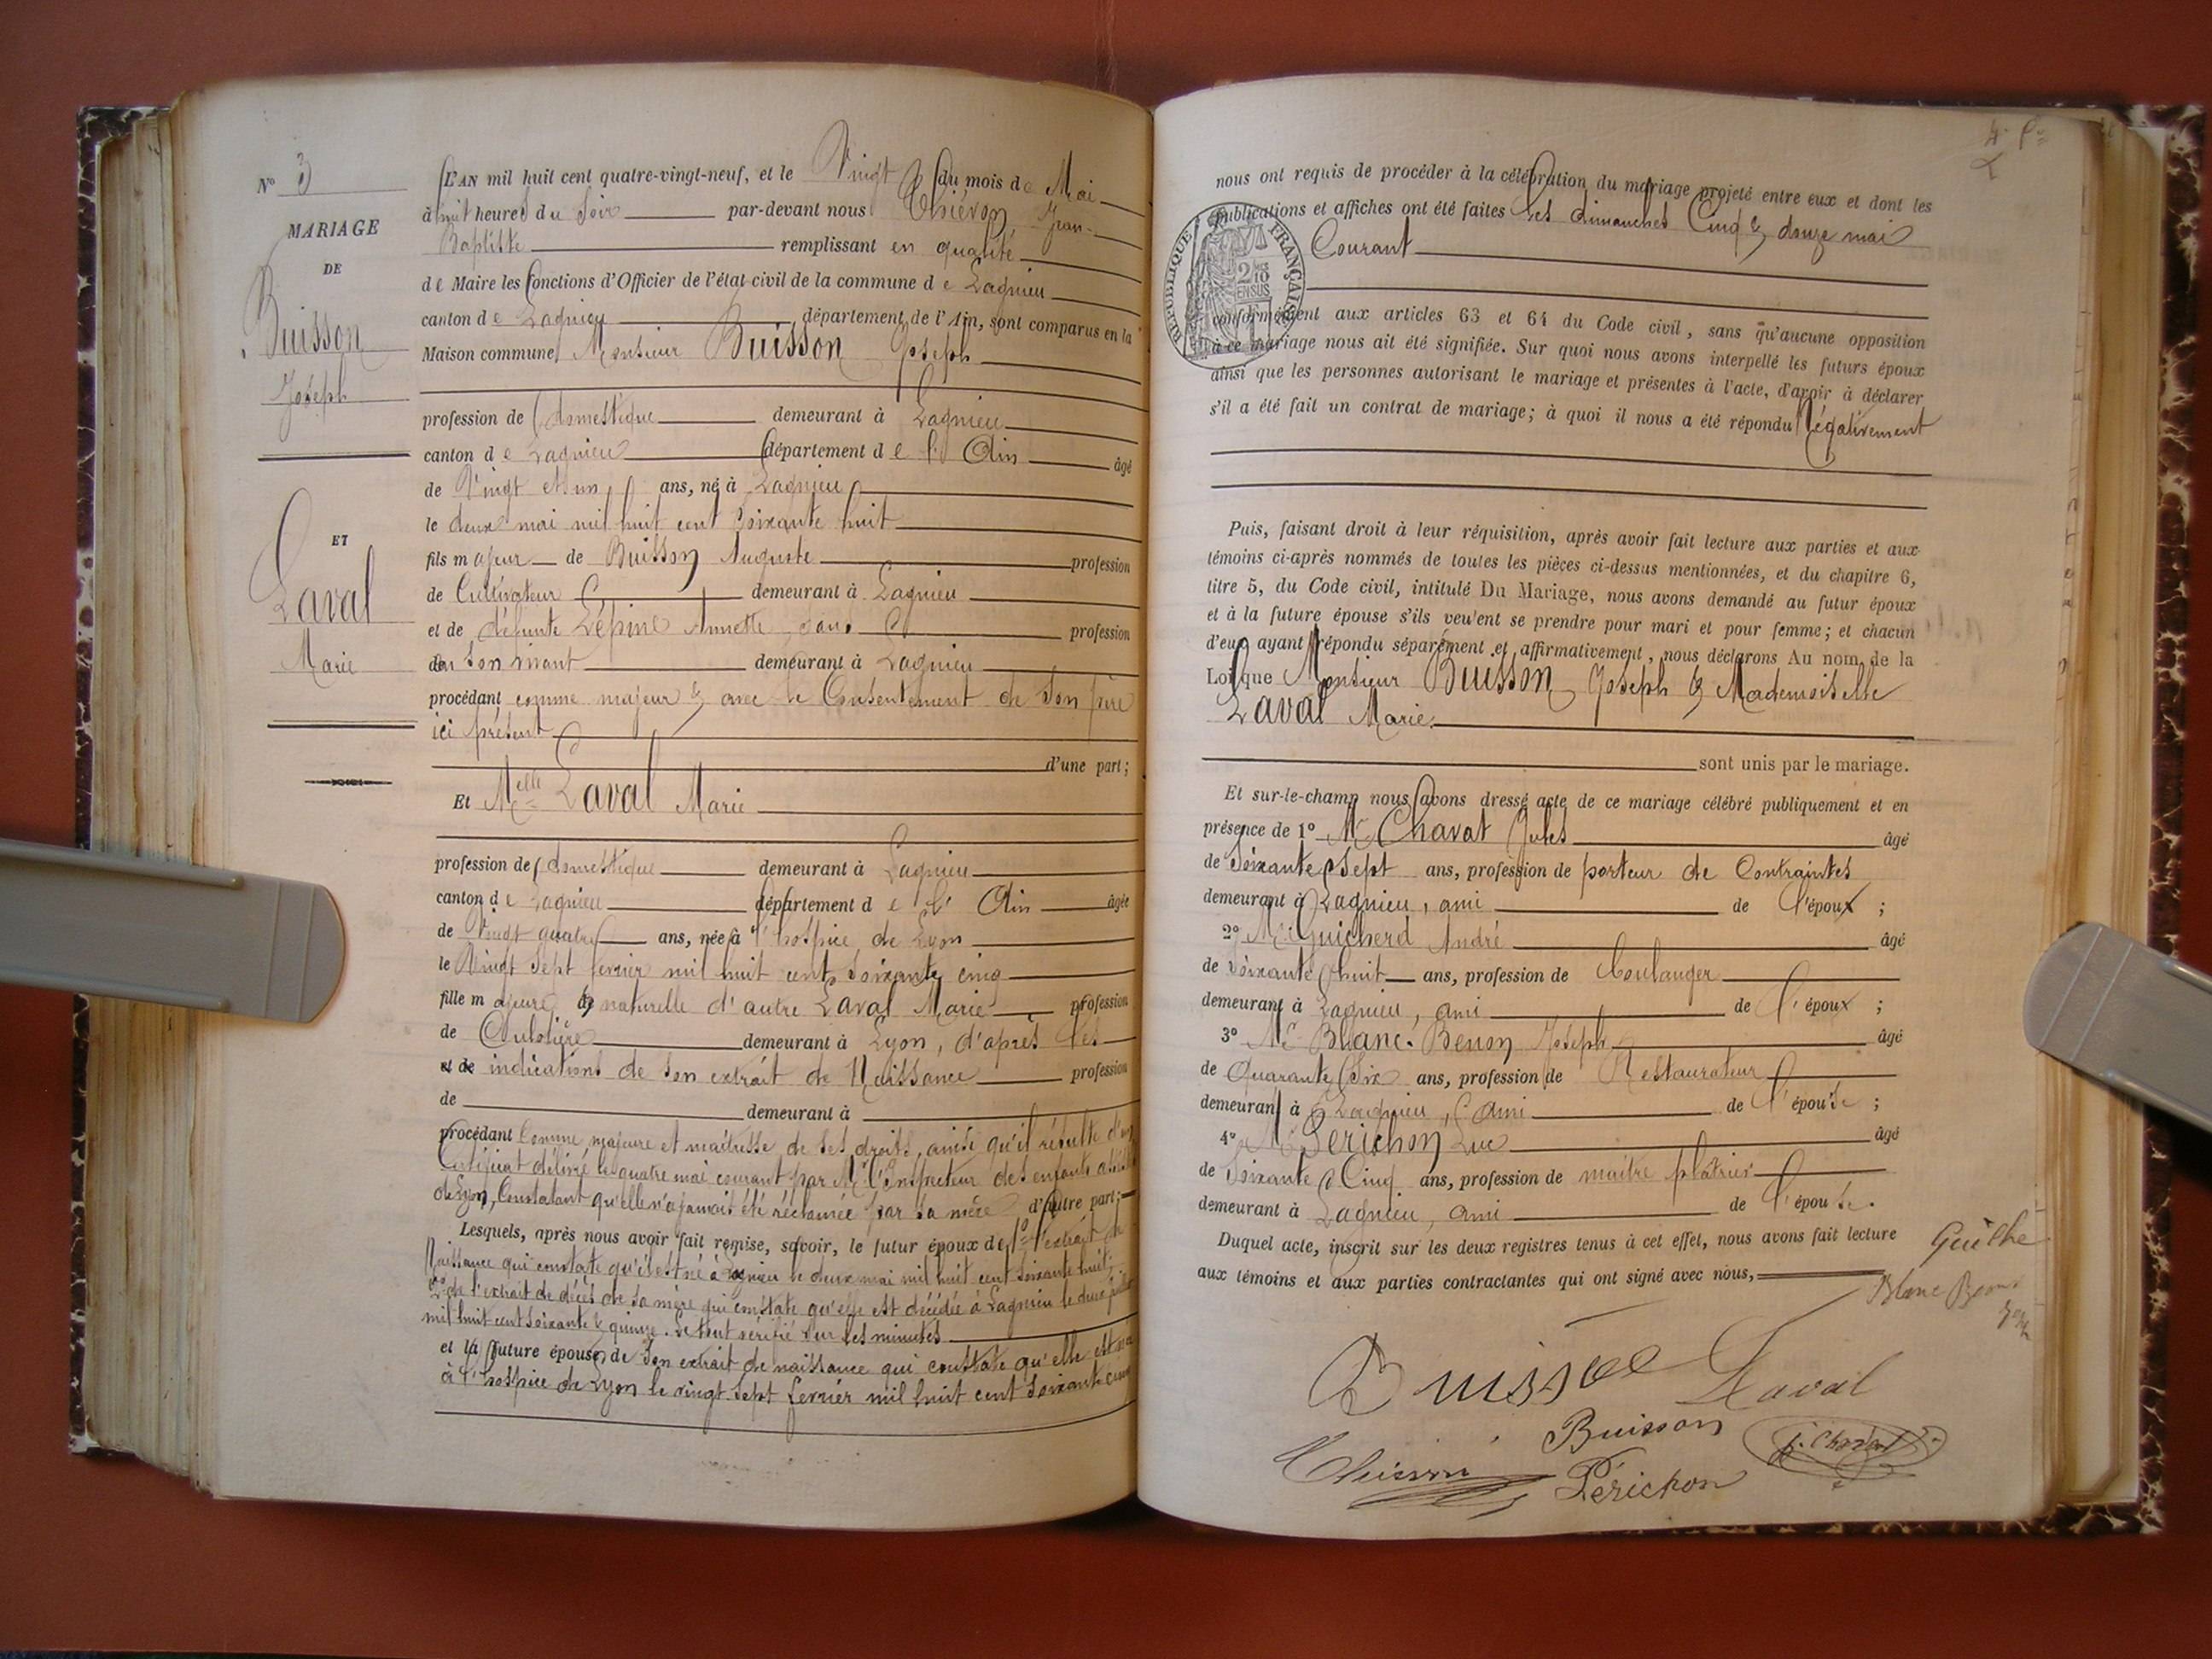 N° 3
MARIAGE
DE
Buisson
Joseph
ET
Laval
Marie
L'AN mil huit cent quatre-vingt-neuf, et le Vingt du mois de Mai
à huit heures du Soir par-devant nous Thiévon Jean-
Baptiste remplissant en qualité
de Maire les fonctions d'Officier de l'état civil de la commune de Lagnieu
canton de Lagnieu département de l'Ain, sont comparus en la
Maison commune, Monsieur Buisson Joseph
profession de domestique demeurant à Lagnieu
canton de Lagnieu département de l'Ain âgé
de Vingt et un ans, né à Lagnieu
le deux mai mil huit cent soixante huit
fils majeur de Buisson Auguste profession
de Cultivateur demeurant à Lagnieu
et de défunte Lépine Annette, sans profession
de son vivant demeurant à Lagnieu
procédant comme majeur & avec le Consentement de son père
ici présent
d'une part;
Et Melle Laval Marie
profession de domestique demeurant à Lagnieu
canton de Lagnieu département de l'Ain âgée
de Vingt quatre ans, née à l'hospice de Lyon
le Vingt sept février mil huit cent soixante cinq
fille majeure & naturelle d'autre Laval Marie profession
de Culotière demeurant à Lyon, d'après les
et de indications de son extrait de Naissance profession
de demeurant à
procédant Comme majeure et maîtresse de ses droits, ainsi qu'il résulte d'un
Certificat délivré le quatre mai courant par Mr l'Inspecteur des enfants assistés
de Lyon, Constatant qu'elle n'a jamais été réclamée par sa mère d'autre part;
Lesquels, après nous avoir fait remise, savoir, le futur époux de 1° l'extrait de
Naissance qui constate qu'il est né à Lagnieu le deux mai mil huit cent soixante huit,
2° de l'extrait de décès de sa mère qui constate qu'elle est décédée à Lagnieu le deux
mil huit cent soixante & quinze. Le tout vérifié sur les minutes
et la future épouse, de son extrait de naissance qui constate qu'elle est née
à l'hospice de Lyon le vingt sept février mil huit cent soixante cinq
nous ont requis de procéder à la célébration du mariage projeté entre eux et dont les
publications et affiches ont été faites les dimanches Cinq & douze mai
Courant
RÉPUBLIQUE FRANÇAISE
2/10 EN SUS
conformément aux articles 63 et 64 du Code civil, sans qu'aucune opposition
à ce mariage nous ait été signifiée. Sur quoi nous avons interpellé les futurs époux
ainsi que les personnes autorisant le mariage et présentes à l'acte, d'avoir à déclarer
s'il a été fait un contrat de mariage; à quoi il nous a été répondu Négativement
Puis, faisant droit à leur réquisition, après avoir fait lecture aux parties et aux
témoins ci-après nommés de toutes les pièces ci-dessus mentionnées, et du chapitre 6,
titre 5, du Code civil, intitulé Du Mariage, nous avons demandé au futur époux
et à la future épouse s'ils veulent se prendre pour mari et pour femme; et chacun
d'eux ayant répondu séparément et affirmativement, nous déclarons Au nom de la
Loi que Monsieur Buisson Joseph & Mademoiselle
Laval Marie
sont unis par le mariage.
Et sur-le-champ nous avons dressé acte de ce mariage célébré publiquement et en
présence de 1° Mr Chavat Jules âgé
de Soixante sept ans, profession de porteur de Contraintes
demeurant à Lagnieu, ami de l'époux ;
2° Mr Guicherd André âgé
de Soixante huit ans, profession de boulanger
demeurant à Lagnieu, ami de l'époux ;
3° Mr Blanc-Benon Joseph âgé
de Quarante Six ans, profession de Restaurateur
demeurant à Lagnieu, ami de l'épouse ;
4° Mr Périchon Luc âgé
de Soixante Cinq ans, profession de maître plâtrier
demeurant à Lagnieu, ami de l'épouse.
Duquel acte, inscrit sur les deux registres tenus à cet effet, nous avons fait lecture
aux témoins et aux parties contractantes qui ont signé avec nous,
Blanc Benon
Laval
Buisson
J. Chavat
Périchon